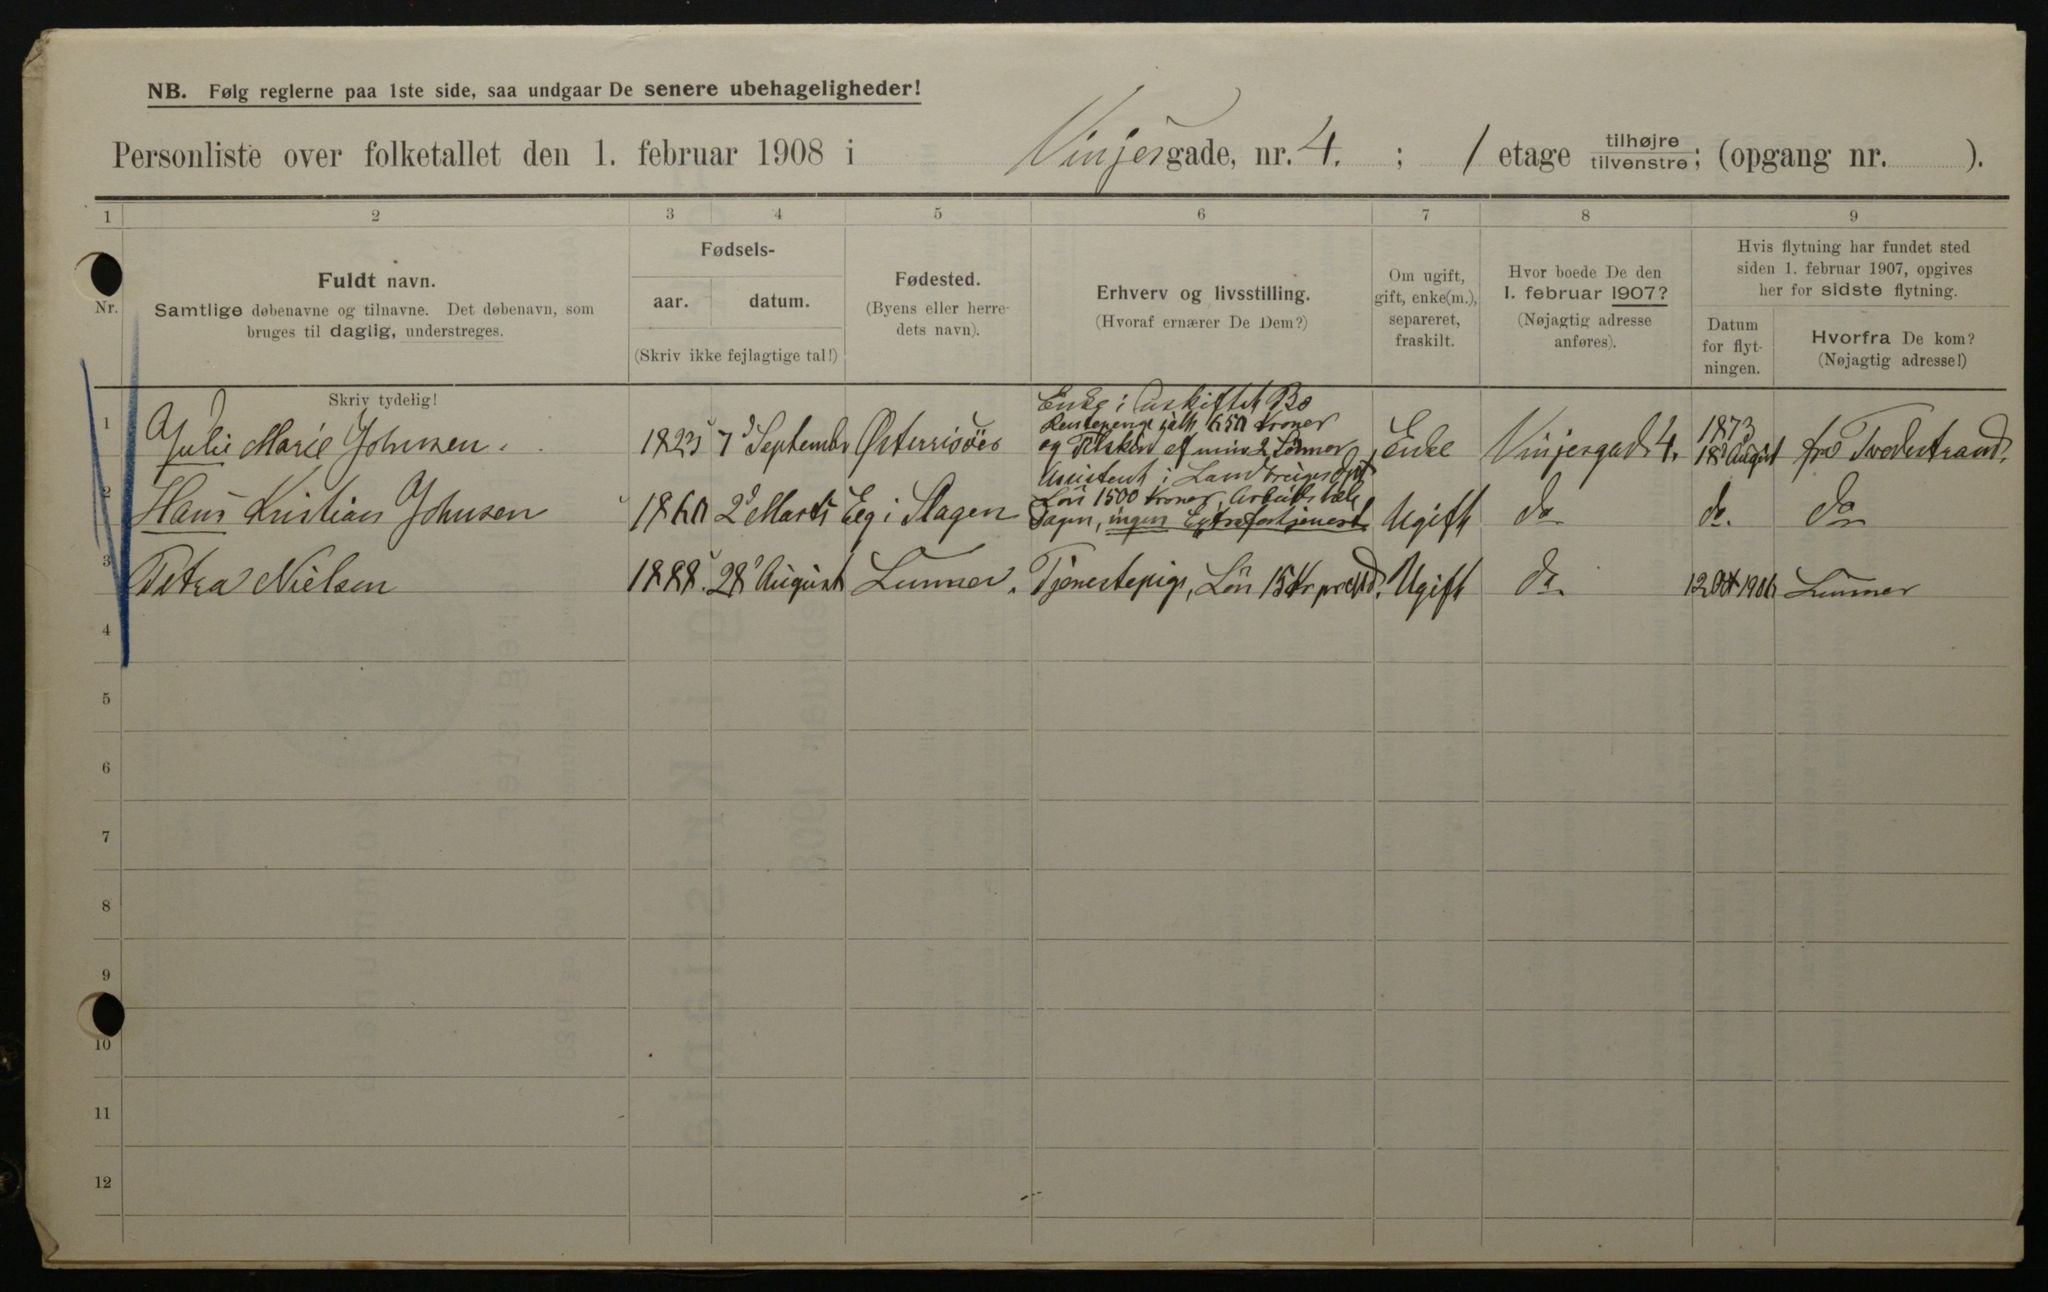 NB. Følg reglerne paa 1ste side, saa undgaar De senere ubehageligheder!
Personliste over folketallet den 1. februar 1908 i Vinjesgade, nr. 4. ; 1 etage tilhøjre tilvenstre; (opgang nr. ).
1 2 3 4 5 6 7 8 9
Nr.
Fuldt navn.
Samtlige døbenavne og tilnavne. Det døbenavn, som
bruges til daglig, understreges.
Fødsels-
aar. datum.
(Skriv ikke fejlagtige tal!)
Fødested.
(Byens eller herre-
dets navn).
Erhverv og livsstilling.
(Hvoraf ernærer De Dem?)
Om ugift,
gift, enke(m.),
separeret,
fraskilt.
Hvor boede De den
1. februar 1907?
(Nøjagtig adresse
anføres).
Hvis flytning har fundet sted
siden 1. februar 1907, opgives
her for sidste flytning.
Datum
for flyt-
ningen.
Hvorfra De kom?
(Nøjagtig adresse!)
Skriv tydelig!
1 Julie Marie Johnsen. 1823 7 September Østerrisöer
Enke i uskiftet Bo
650 Kroner
og af mine 2 Sönner
Enke Vinjesgade 4. 1873 18 August fra Tvedestrand.
2 Hans Kristian Johnsen 1860 2 Marts Eeg i Slagen
Assistent i
Lön 1500 Kroner, Arbeide hele
Dagen, ingen Extrafortjeneste
Ugift do do. do
3 Petra Nielsen 1888. 28 August Lunner. Tjenestepige, Lön 15 Kr pr Md. Ugift do 12 Okt 1906 Lunner
4
5
6
7
8
9
10
11
12